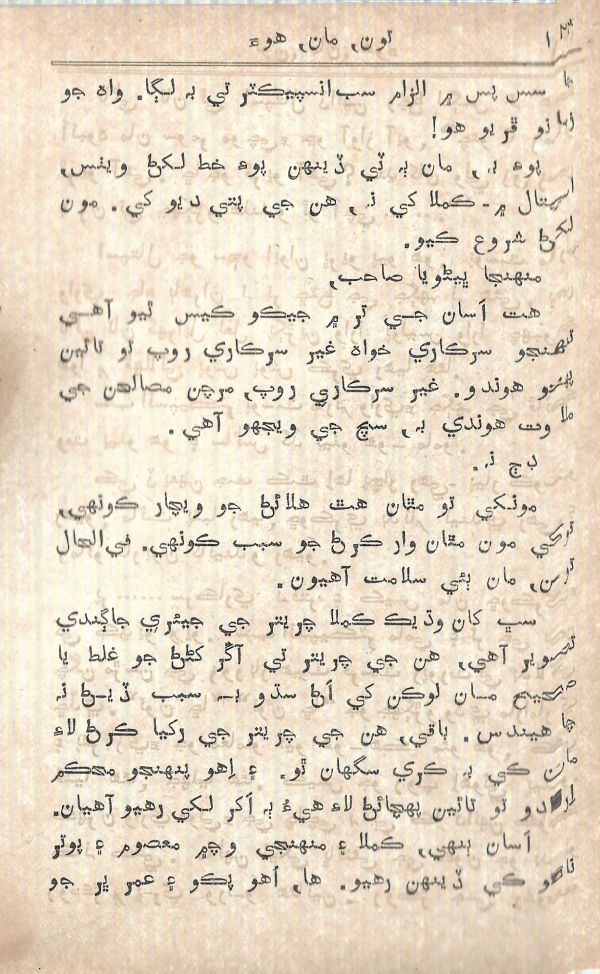 تون, مان, هوءِ ۱۳
جا سس پس ۾ الزام سب انسپيڪٽر تي بہ لڳا. واهہ جو
زمانو ڦريو هو!
پوءِ بہ, مان بہ ٽي ڏينهن پوءِ خط لکڻ ويٺس,
اسپتال ۾ - ڪملا کي نہ, هن جي پتي ديو کي. مون
لکڻ شروع ڪيو.
منهنجا ڀيڻويا صاحب,
هت اَسان جي ٿر ۾ جيڪو ڪيس ٿيو آهي
تنهنجو سرڪاري خواهہ غير سرڪاري روپ تو تائين
پهتو هوندو. غير سرڪاري روپ, مرچن مصالحن جي
ملاوت هوندي بہ, سچ جي ويجهو آهي.
ڊڄ نہ.
مونکي تو مٿان هٿ هلائڻ جو ويچار ڪونهي,
توکي مون مٿان وار ڪرڻ جو سبب ڪونهي. في الحال
تون, مان ٻئي سلامت آهيون.
سڀ کان وڌيڪ ڪملا چرتر جي جيئري جاڳندي
تصوير آهي, هن جي چرتر تي آڱر کڻڻ جو غلط يا
صحيح مان لوڪن کي اَڻ سڌو بہ سبب ڏيڻ نہ
چاهيندس. باقي, هن جي چرتر جي رکيا ڪرڻ لاءِ
مان کي بہ ڪري سگهان ٿو. ۽ اِهو پنهنجو محڪم
اِرادو تو تائين پهچائڻ لاءِ هيءُ ٻہ اکر لکي رهيو آهيان.
اَسان ٻنهي, ڪملا ۽ منهنجي وچ۾ معصوم ۽ پوتر
ناتو ڪي ڏينهن رهيو. ها, اُهو پڪو ۽ عمر ڀر جو